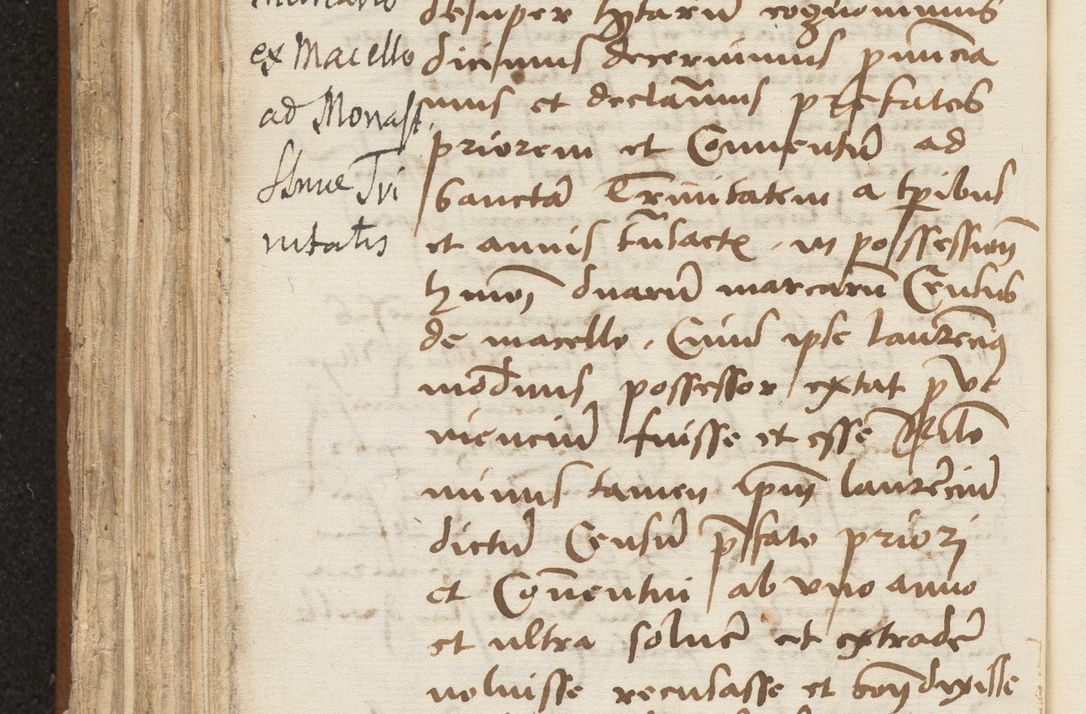 ex Macello
ad Monast
Sanctae Tri
nitatis
desuper cognominus
dicimus decernimus pronuncia
mus et declaramus prefatos
priorem et Conventum ad
Sanctam Trinitatem a tpibus
et annis in possession
hmoi duarum marcarum Census
de macello. Cuius ipse laurencius
modernus possessor extat prove
niencium fuisse et esse
minus tamen ipm laurencium
dictum Censum prefato priori
et Conventui ab uno anno
et ultra solvere et extradere
noluisse recusasse et contradixisse